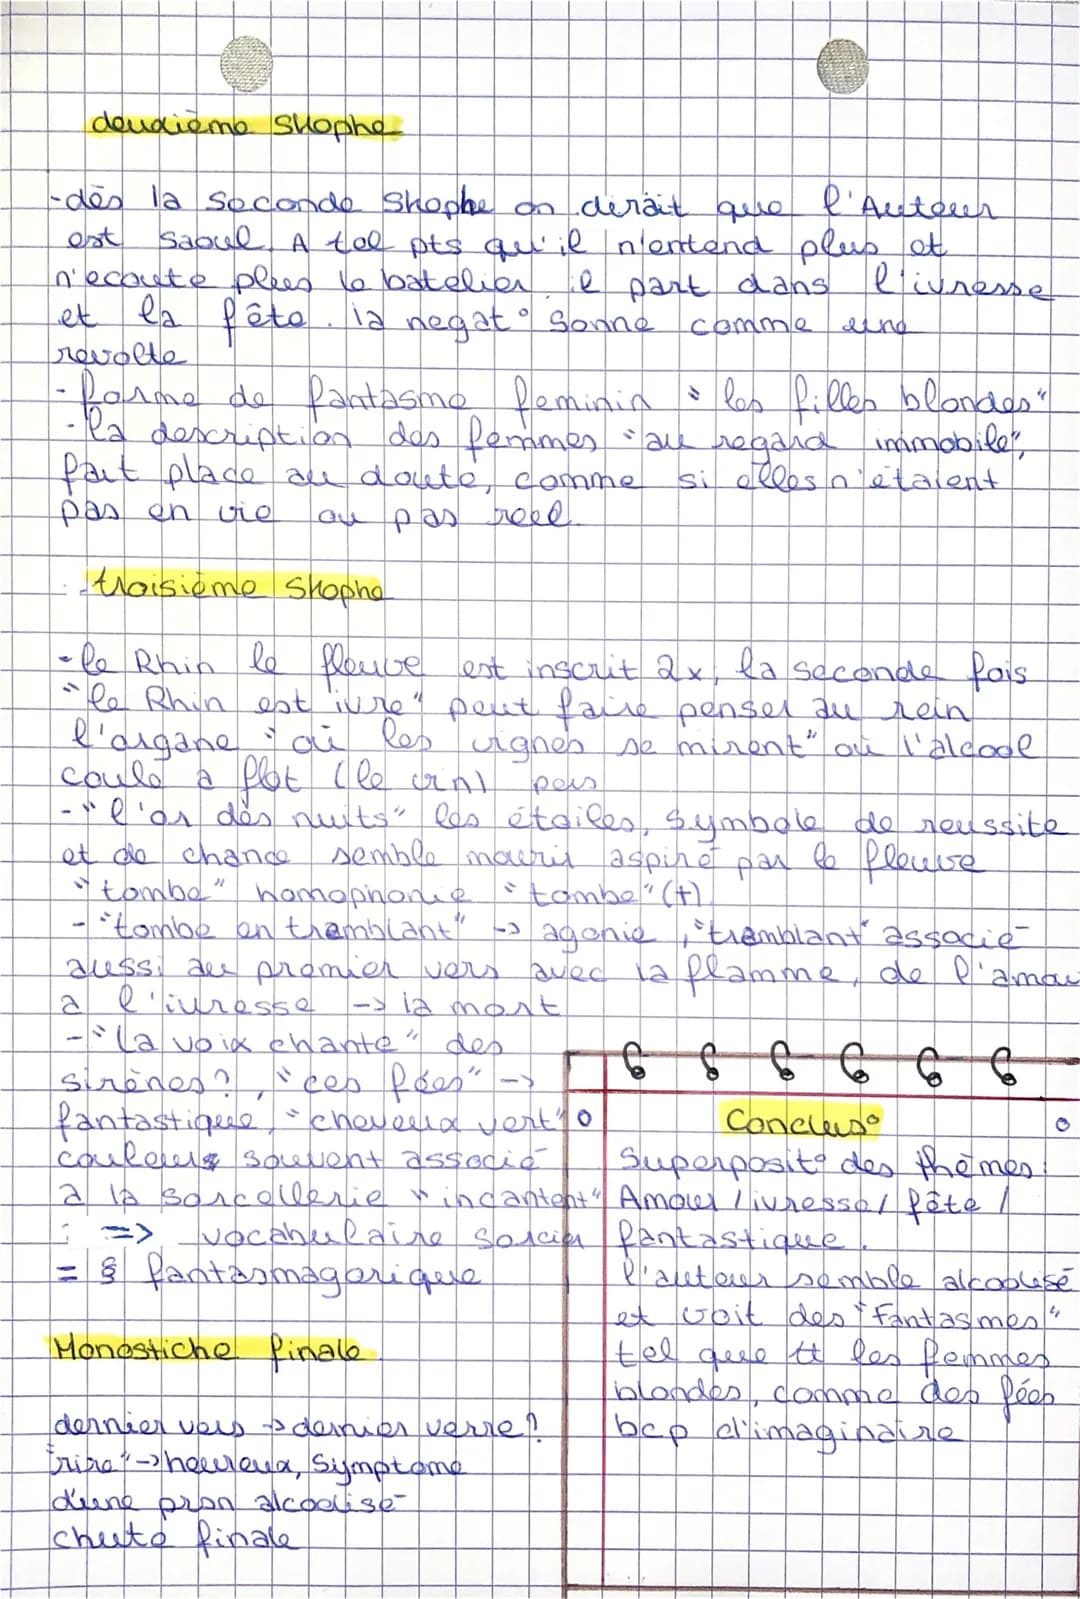 deuxième Strophe
-dès la seconde Strophe on dirait que l'Auteur
est saoul. A tel pts qu'il n'entend plus et
n'ecoute plus le batelier. il part dans l'ivresse
et la fête. la negat° sonne comme une
revolte
- forme de fantasme feminin "les filles blondes"
- la description des femmes "au regard immobile",
fait place au doute, comme si elles n'étaient
pas en vie ou pas reel.
troisième Strophe
- le Rhin le fleuve est inscrit 2x, la seconde fois
"le Rhin est ivre" peut faire penser au rein
l'organe "où les vignes se mirent" où l'alcool
coule a flot (le vin)
- "l'or des nuits" les étoiles, symbole de reussite
et de chance semble mourir aspiré par le fleuve
"tombe" homophonie "tombe" (†)
- "tombe en tremblant" -> agonie, "tremblant" associé
aussi au premier vers avec la flamme, de l'amou
a l'ivresse -> la mort
- "la voix chante" des
sirènes?, "ces fées" ->
fantastique, "cheveux vert"
couleurs souvent associé
a la sorcellerie "incantent"
=> vocabulaire sorcier
= § fantasmagorique
Monostiche finale
dernier vers -> dernier verre?
"rire" -> heureux, symptome
d'une prsn alcoolisé
chute finale
Conclus°
Superposit° des thèmes:
Amour / ivresse / fête /
fantastique.
l'auteur semble alcoolisé
et voit des "fantasmes"
tel que tt les femmes
blondes, comme des fées
bcp d'imaginaire